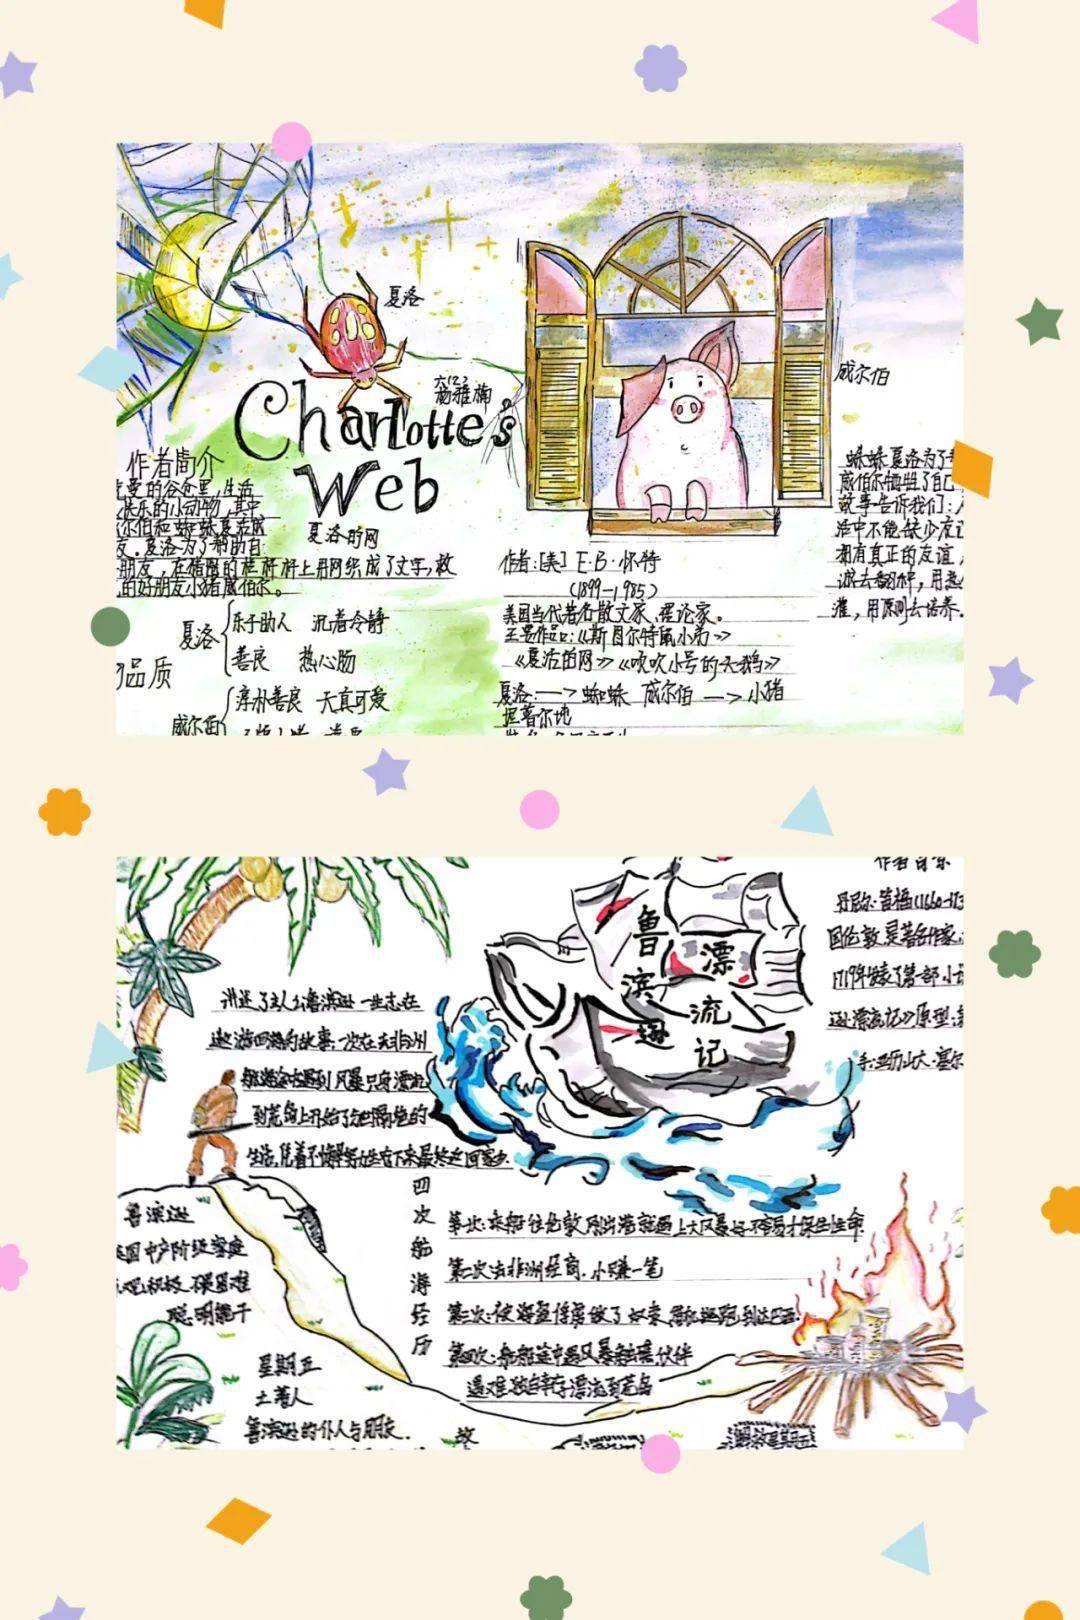 夏洛
Charlotte's
Web
夏洛的网
威尔伯
作者简介
的谷仓里,生活
快乐的小动物,其中
尔伯和蜘蛛夏洛成
友。夏洛为了帮助自
朋友,在猪圈的栏杆上用网织成了文字,救
的好朋友小猪威尔伯。
夏洛
乐于助人 沉着冷静
善良 热心肠
品质
威尔伯
淳朴善良 天真可爱
作者:[美] E·B·怀特
(1899—1985)
美国当代著名散文家、评论家。
主要作品:《斯图尔特鼠小弟》
《夏洛的网》《吹吹小号的天鹅》
夏洛:—>蜘蛛 威尔伯—>小猪
坦普尔地
蜘蛛夏洛为了
威尔伯牺牲了自己
故事告诉我们:
活中不能缺少友
拥有真正的友谊
诚去翻种,用
灌,用原则去培养.
鲁滨逊
漂流记
讲述了主人公鲁滨逊一生志在
遨游四海的故事:一次在去非洲
航海途中遇到风暴只身漂流
到荒岛上开始了与世隔绝的
生活,凭着不懈努力生存下来最终返回家乡.
鲁滨逊
国中产阶级家庭
观积极 不畏困难
聪明能干
星期五
土著人
鲁滨逊的仆人与朋友.
四次航海经历
第一次:乘船往伦敦,刚出港就遇上大风暴好不容易才保住性命
第二次:去非洲经商,小赚一笔
第三次:被海盗俘虏做了奴隶,后划船逃跑到达巴西.
第四次:船途中遇风暴触礁 伙伴
遇难,独自幸存漂流到荒岛
丹尼尔·笛福(1660-173
国伦敦是著名作家
1719年发表了第一部小
逊漂流记》原型:
手:亚历山大·塞尔
故